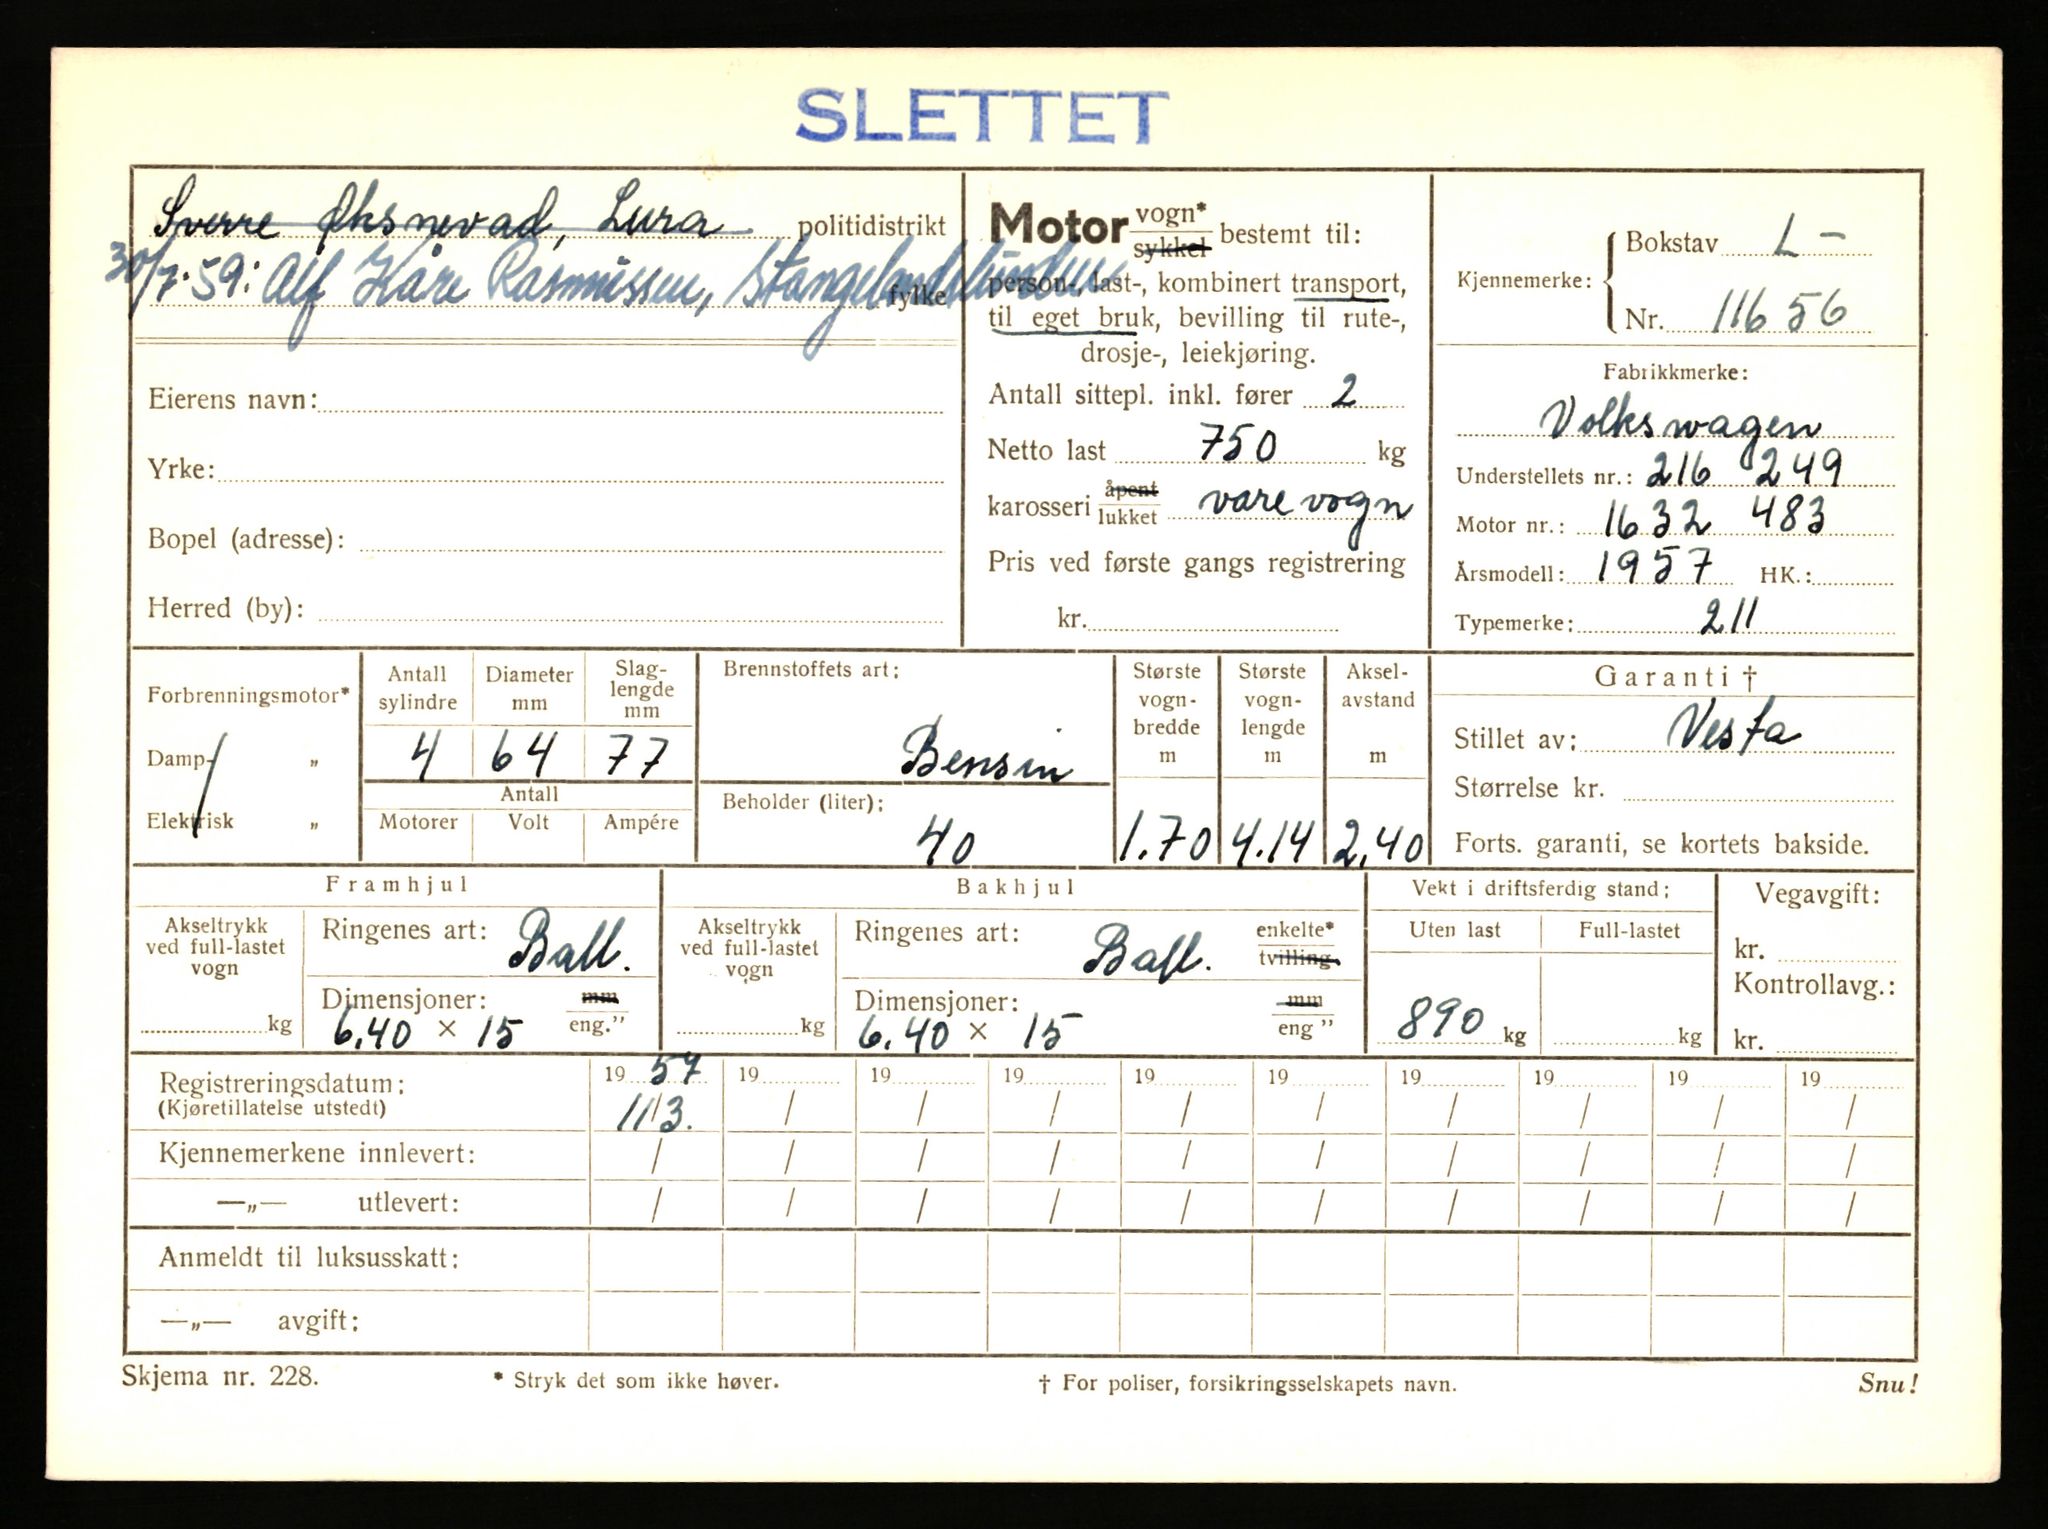 SLETTET
Sverre Øksnevad, Lura politidistrikt
30/7-59: Alf Kåre Rasmussen, Stangelandslunden fylke
Eierens navn:
Yrke:
Bopel (adresse):
Herred (by):
Motor vogn* sykkel bestemt til:
person-, last-, kombinert transport,
til eget bruk, bevilling til rute-,
drosje-, leiekjøring.
Antall sittepl. inkl. fører 2
Netto last 750 kg
karosseri åpent lukket varevogn
Pris ved første gangs registrering
kr.
Kjennemerke: Bokstav L-
Nr. 11656
Fabrikkmerke:
Volkswagen
Understellets nr.: 216 249
Motor nr.: 1632 483
Årsmodell: 1957 HK.:
Typemerke: 211
Forbrenningsmotor*
Damp- „
Elektrisk „
Antall sylindre Diameter mm Slag-lengde mm
4 64 77
Antall
Motorer Volt Ampére
Brennstoffets art:
Bensin
Beholder (liter):
40
Største vogn-bredde m
1.70
Største vogn-lengde m
4.14
Aksel-avstand m
2.40
Garanti †
Stillet av: Vesta
Størrelse kr.
Forts. garanti, se kortets bakside.
Framhjul
Akseltrykk ved full-lastet vogn
kg
Ringenes art: Ball.
Dimensjoner: mm
6.40 × 15 eng.”
Bakhjul
Akseltrykk ved full-lastet vogn
kg
Ringenes art: Ball. enkelte* tvilling.
Dimensjoner: mm
6.40 × 15 eng ”
Vekt i driftsferdig stand:
Uten last Full-lastet
890 kg kg
Vegavgift:
kr.
Kontrollavg.:
kr.
Registreringsdatum: 19 57 19 19 19 19 19 19 19 19 19
(Kjøretillatelse utstedt) 11/3. / / / / / / / / /
Kjennemerkene innlevert: / / / / / / / / / /
—„— utlevert: / / / / / / / / / /
Anmeldt til luksusskatt:
—„— avgift:
Skjema nr. 228. * Stryk det som ikke høver. † For poliser, forsikringsselskapets navn. Snu!